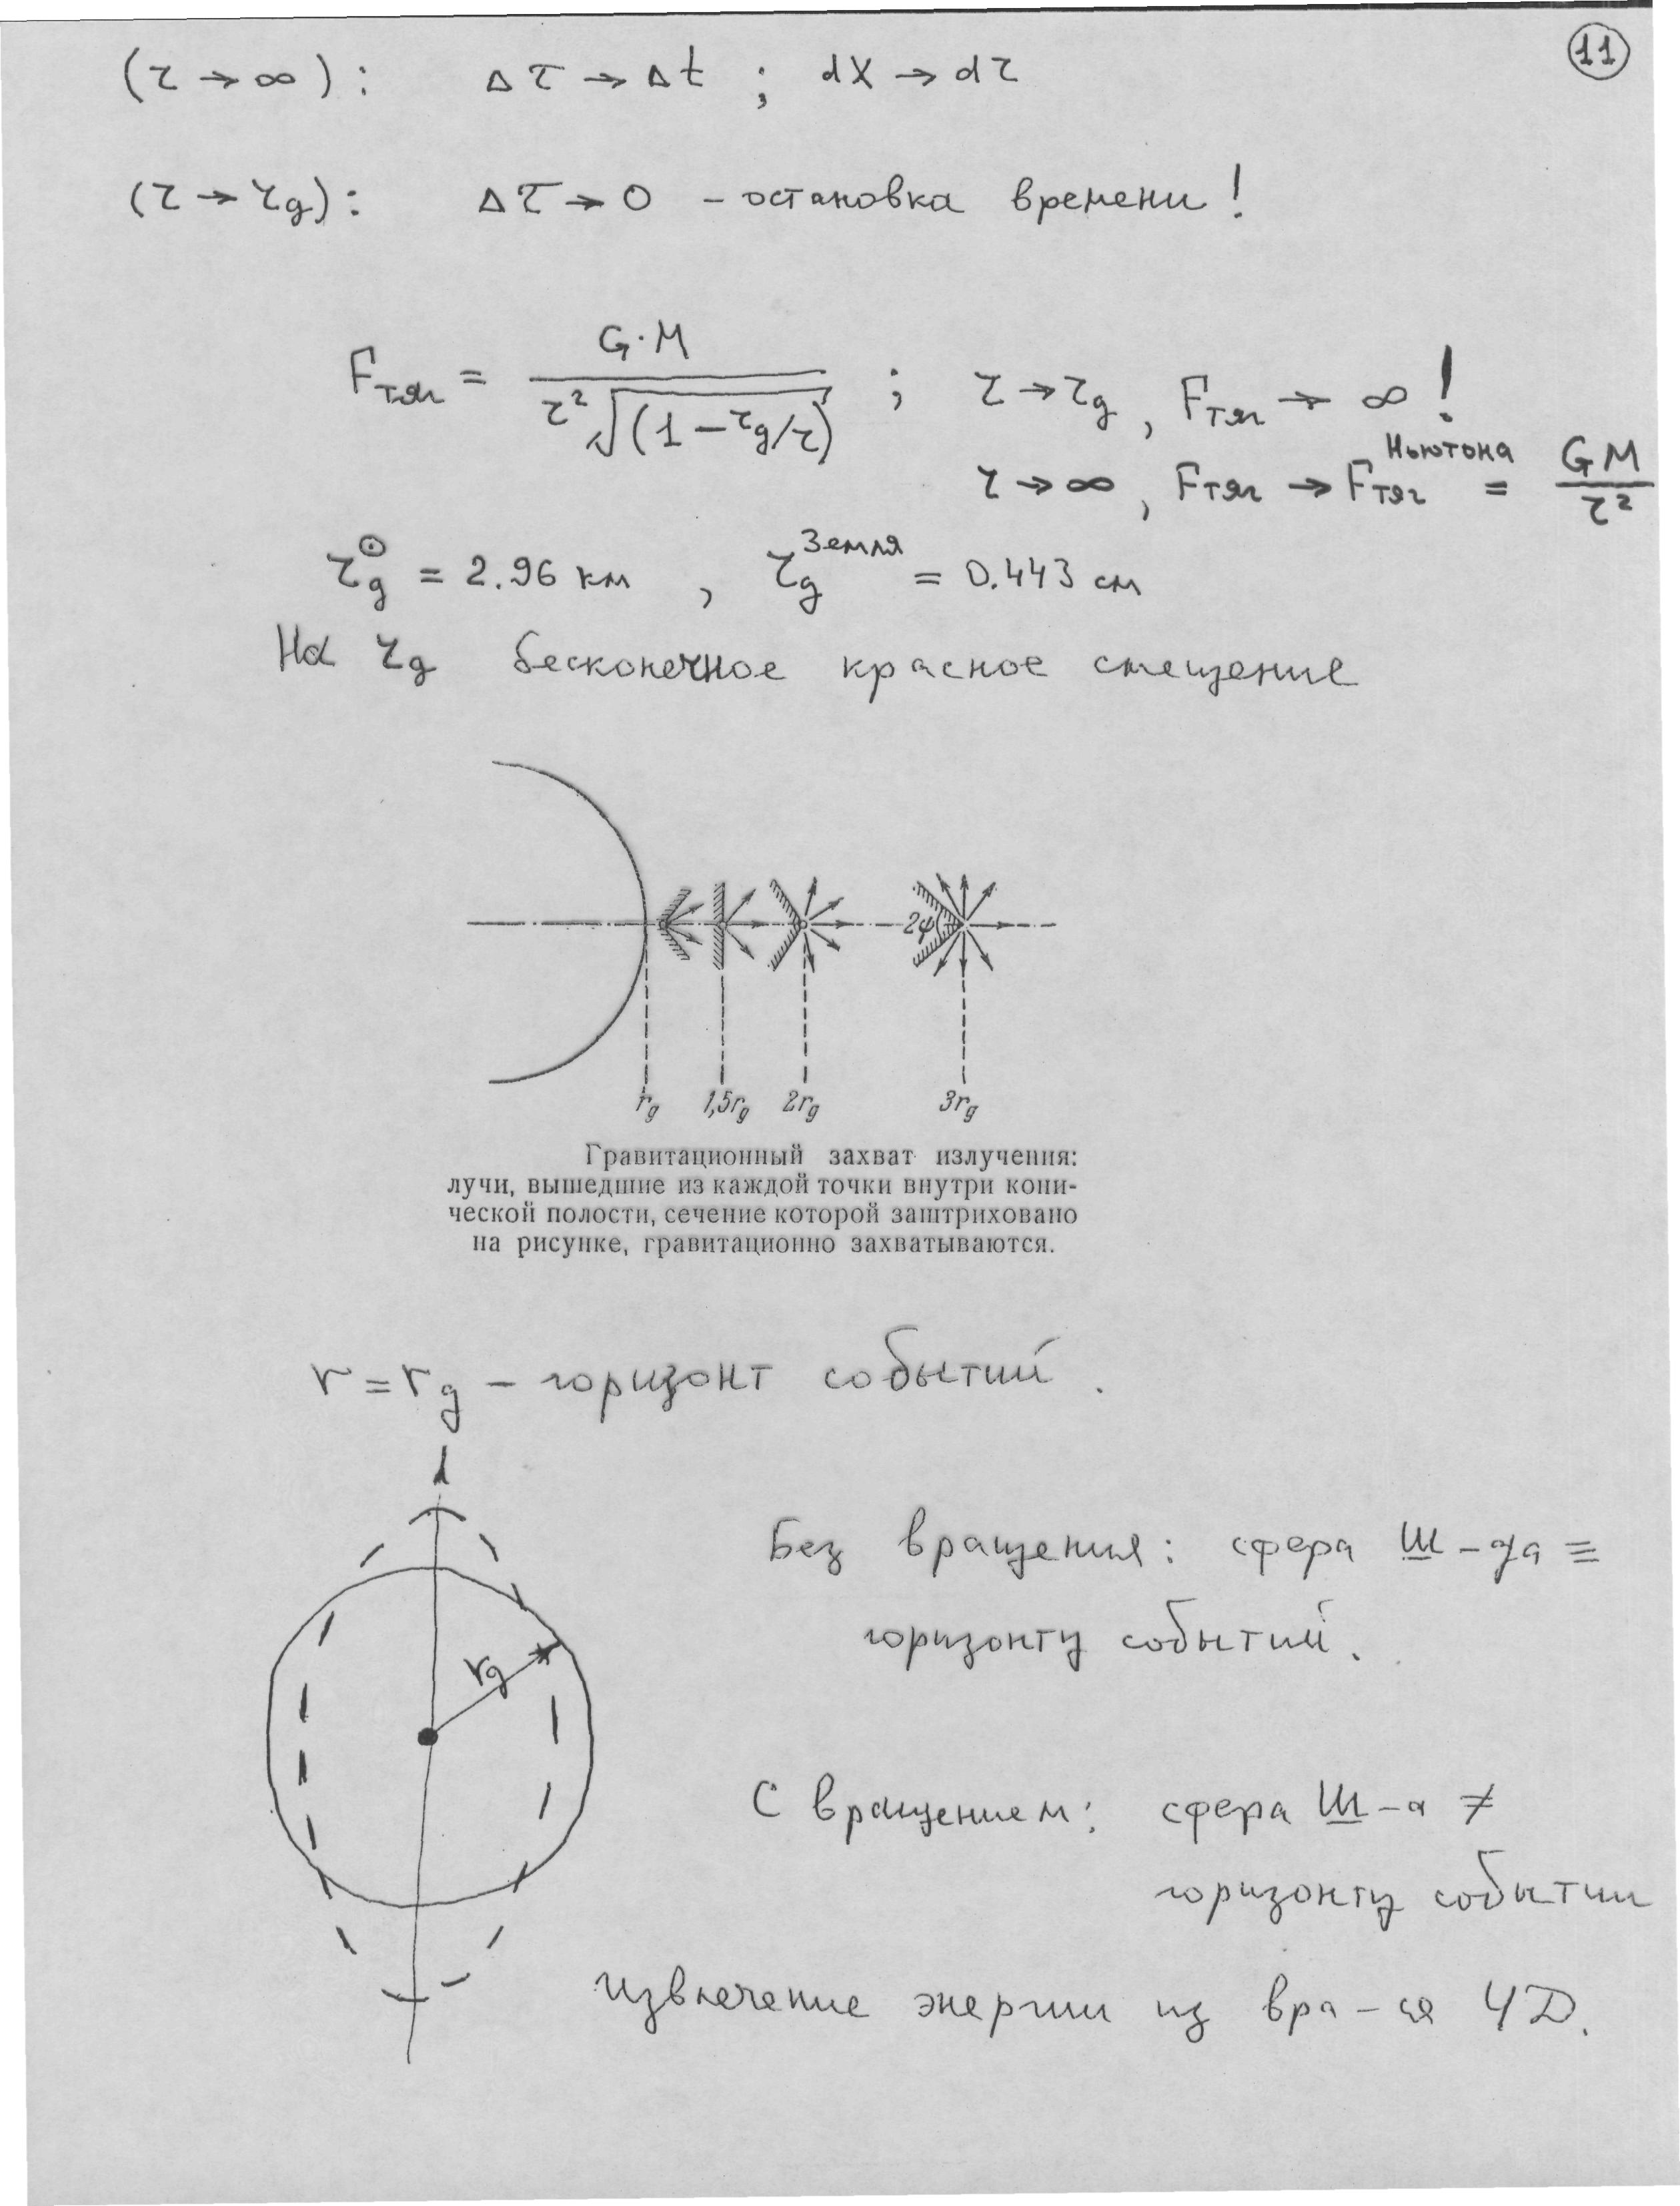 11
(r → ∞): Δτ → Δt ; dX → dr
(r → r_g): Δτ → 0 – остановка времени!
F_тяг = G·M / r²√(1 – r_g/r) ; r → r_g, F_тяг → ∞!
r → ∞, F_тяг → F_тяг^Ньютона = GM / r²
r_g^⊙ = 2.96 км , r_g^Земля = 0.443 см
На r_g бесконечное красное смещение
2φ
r_g 1,5r_g 2r_g 3r_g
Гравитационный захват излучения:
лучи, вышедшие из каждой точки внутри кони-
ческой полости, сечение которой заштриховано
на рисунке, гравитационно захватываются.
r = r_g – горизонт событий.
Без вращения: сфера Ш-да ≡
горизонту событий.
r_g
С вращением: сфера Ш-а ≠
горизонту событии
извлечение энергии из вра-ся ЧД.